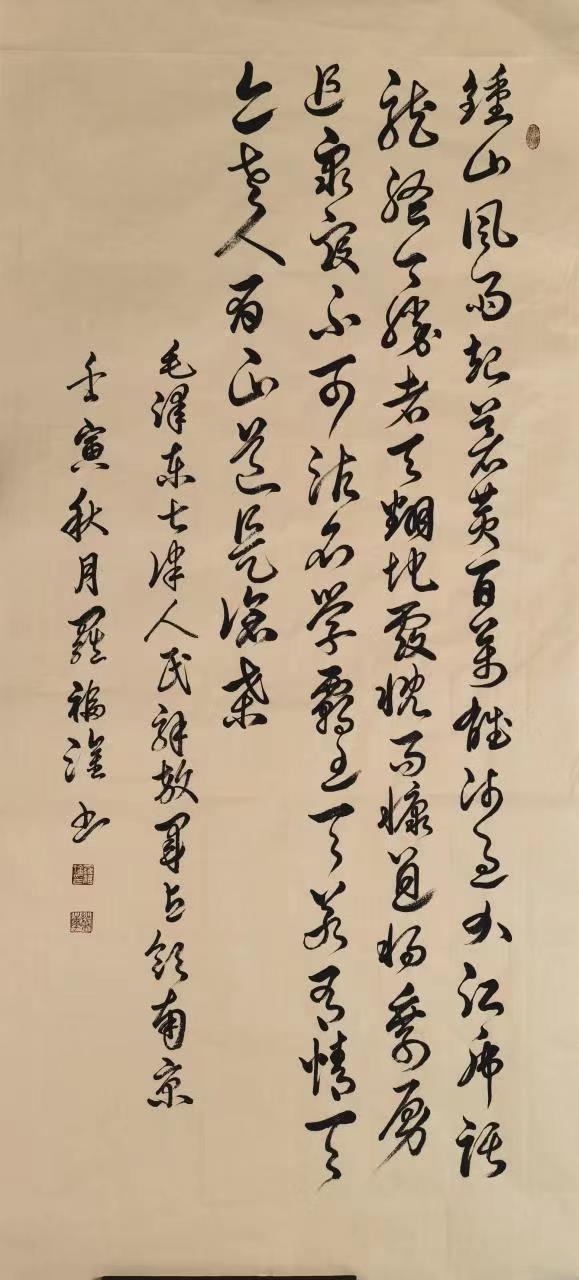 鍾山風雨起蒼黃百萬雄師過大江虎踞
龍盤今勝昔天翻地覆慨而慷宜將剩勇
追窮寇不可沽名學霸王天若有情天
亦老人間正道是滄桑
毛澤東七律人民解放軍占領南京
壬寅秋月羅福書